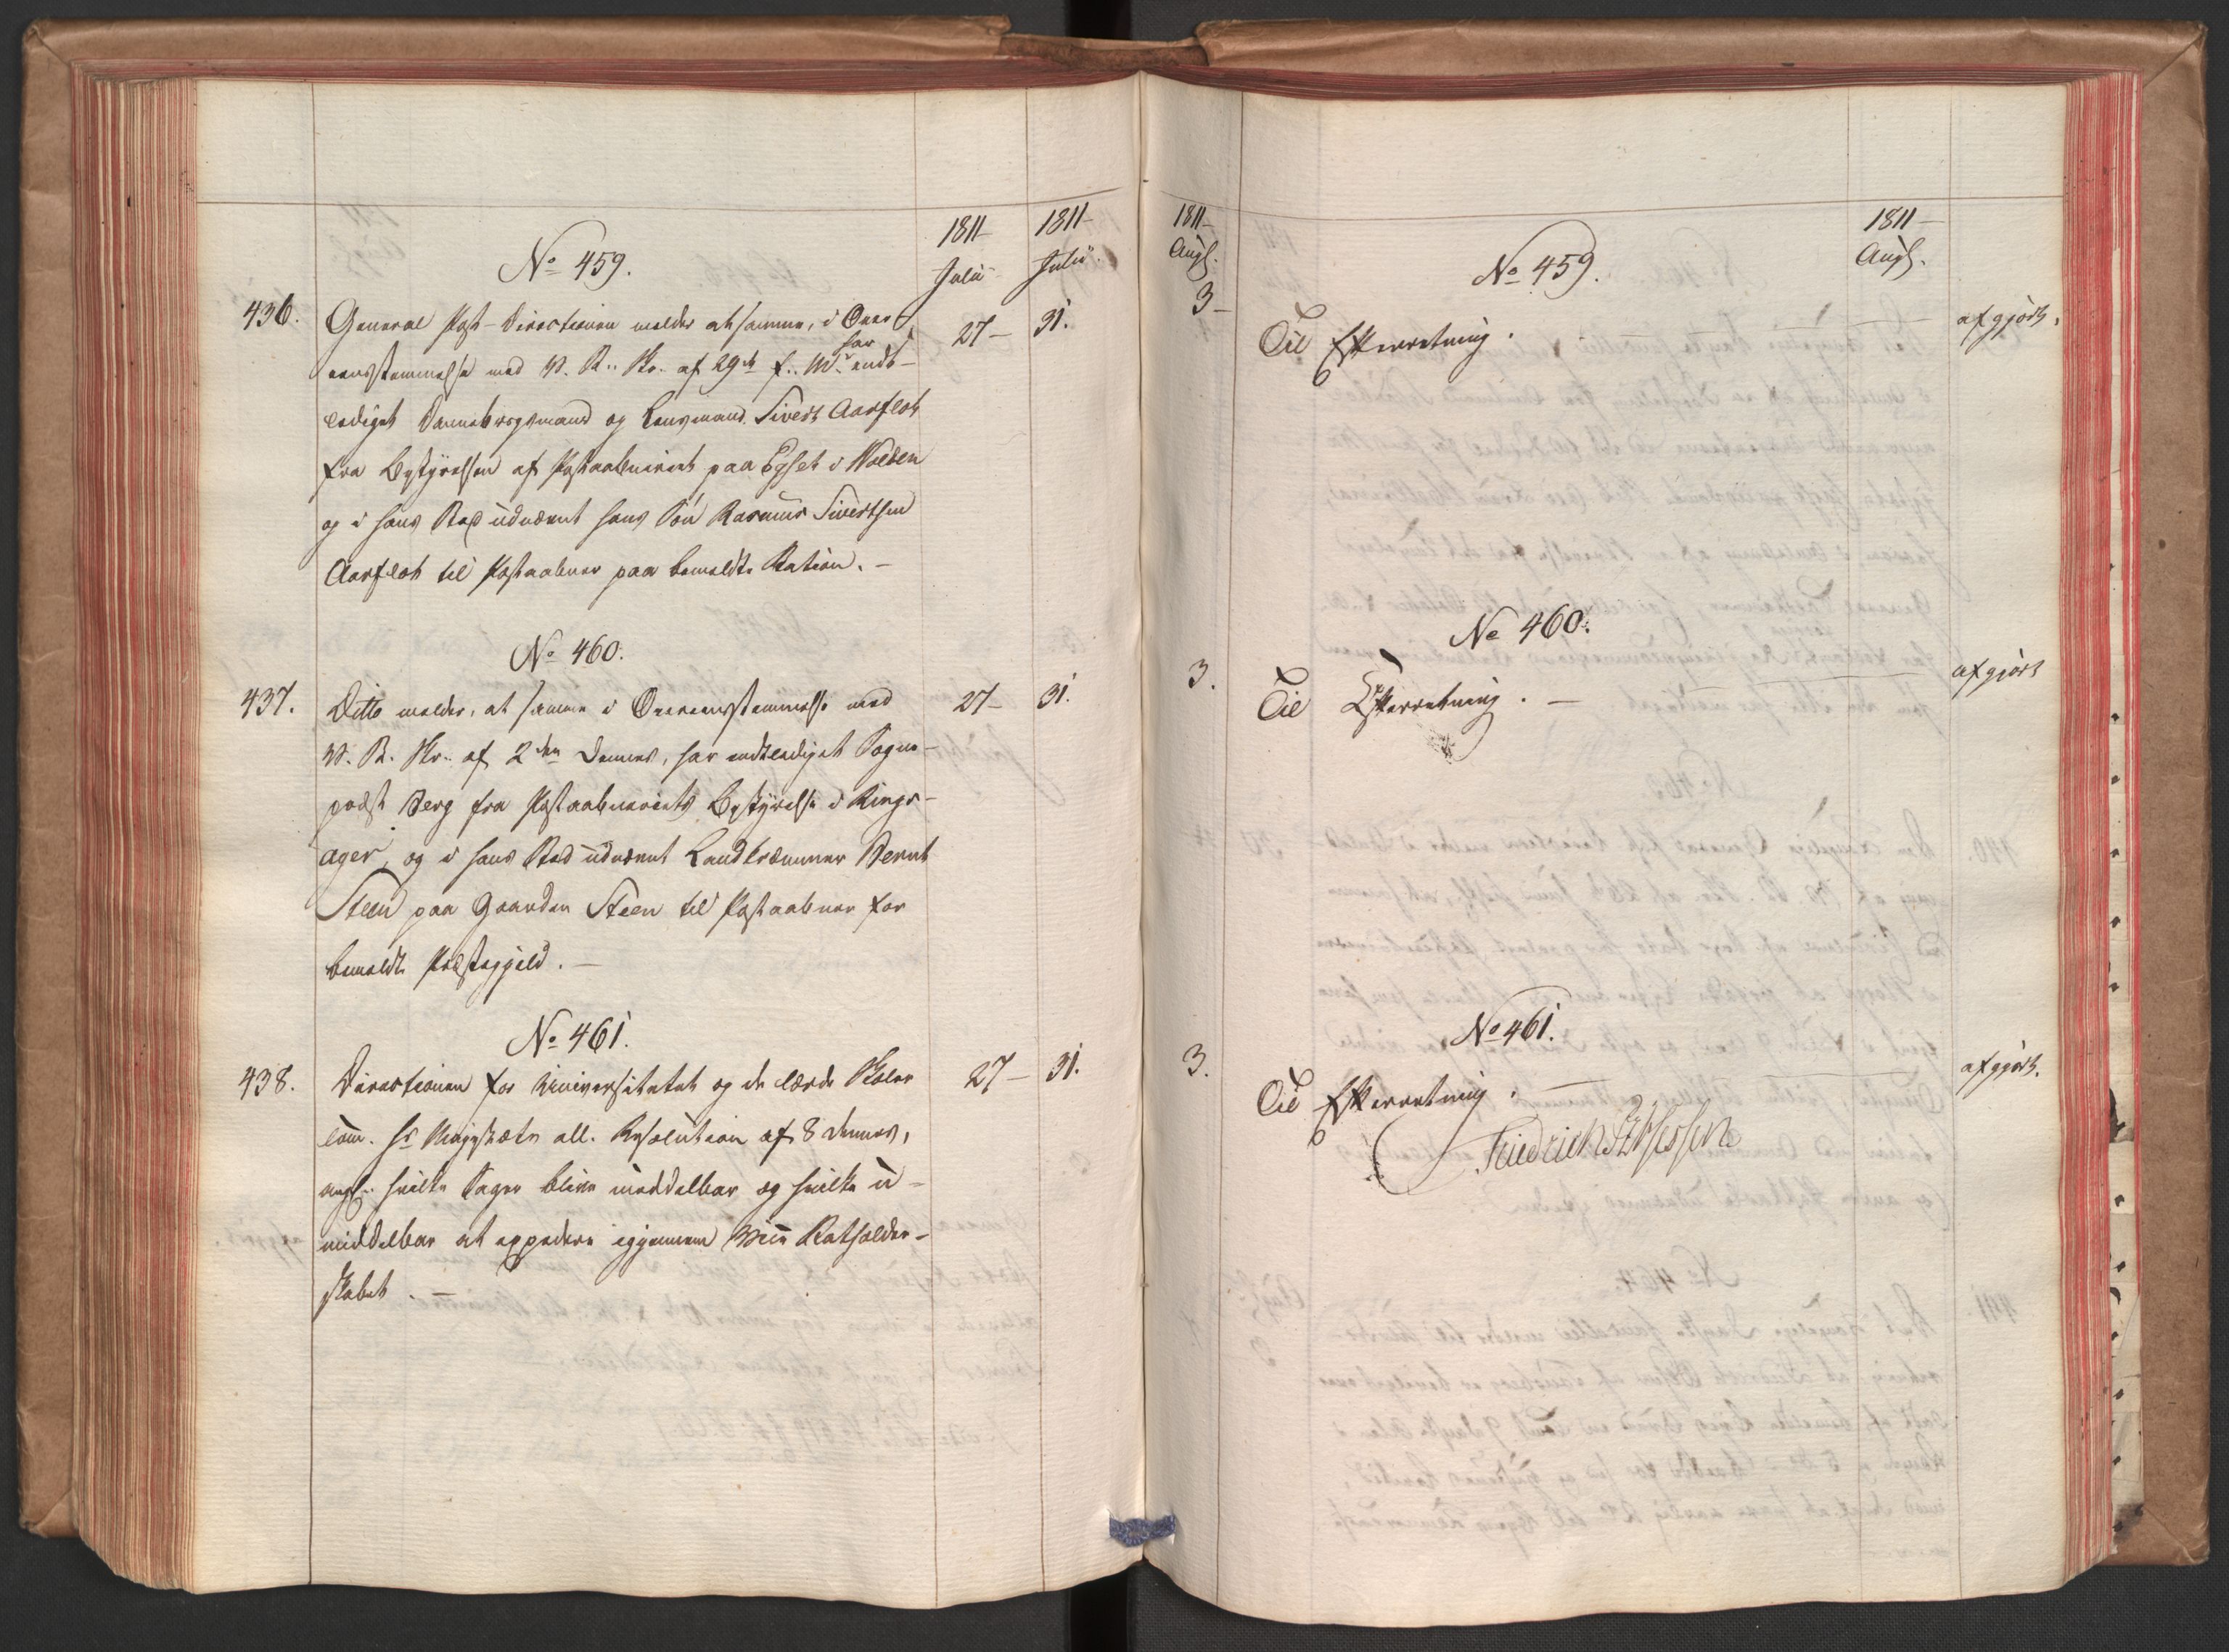 1811
1811
Julii
Julii
No 459.
436.
General Post-Directionen melder at samme, i Over
27 –
31.
eensstemmelse med V. R. Skr. af 29de f. M. har endt-
lediget Dannebrogsmand og Lensmand Sivert Aarflot
fra Bestyrelsen af Postaabneriet paa Egset i Wolden
og i hans Sted udnævnt hans Søn Rasmus Sivertsen
Aarflot til Postaabner paa bemeldte Station. –
No 460.
437.
Ditto melder, at samme i Overeensstemmelse med
27 –
31.
V. R. Skr. af 2den dennes, har endtlediget Sogne-
præst Berg fra Postaabneriets Bestyrelse i Rings-
ager, og i hans Sted udnævnt Landkræmmer Bernt
Steen paa Gaarden Steen til Postaabner for
bemeldte Præstegjeld. –
No 461.
438.
Directionen for Universitetet og de lærde Skoler
27 –
31.
com. Hs Majestæts all. Resolution af 8 dennes,
angl. hvilke Sager blive middelbar og hvilke u-
middelbar at expedere igjennem Statholder-
skabet. –
1811
1811
Augl.
Augl.
No 459.
3 –
Til Efterretning.
afgjort.
No 460.
3.
Til Efterretning. –
afgjort
No 461.
3.
Til Efterretning.
afgjort.
Friedrich